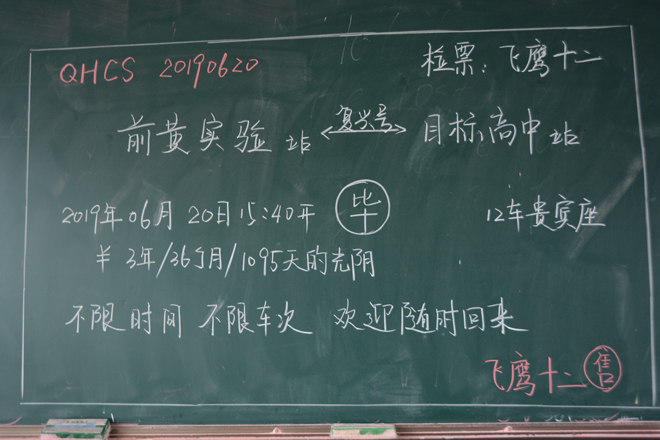 QHCS 20190620 检票:飞鹰十二
前黄实验站 复兴号 目标高中站
2019年06月20日15:40开 毕 12车贵宾座
￥3年/36个月/1095天的光阴
不限时间 不限车次 欢迎随时回来
飞鹰十二 售